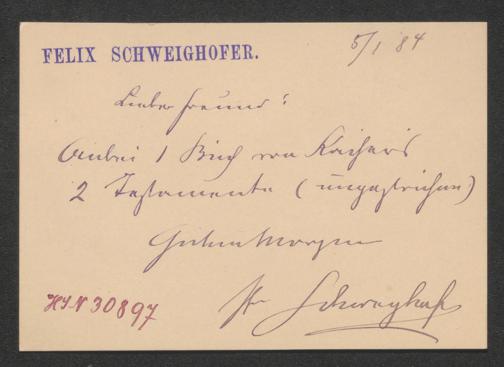 FELIX SCHWEIGHOFER.
5/1 84
Lieber Freund!
Anbei 1 Buch von Kaiser's
2 Testamente (ungestrichen)
Guten Morgen
Ihr Schweighofer
H.I.N 30897